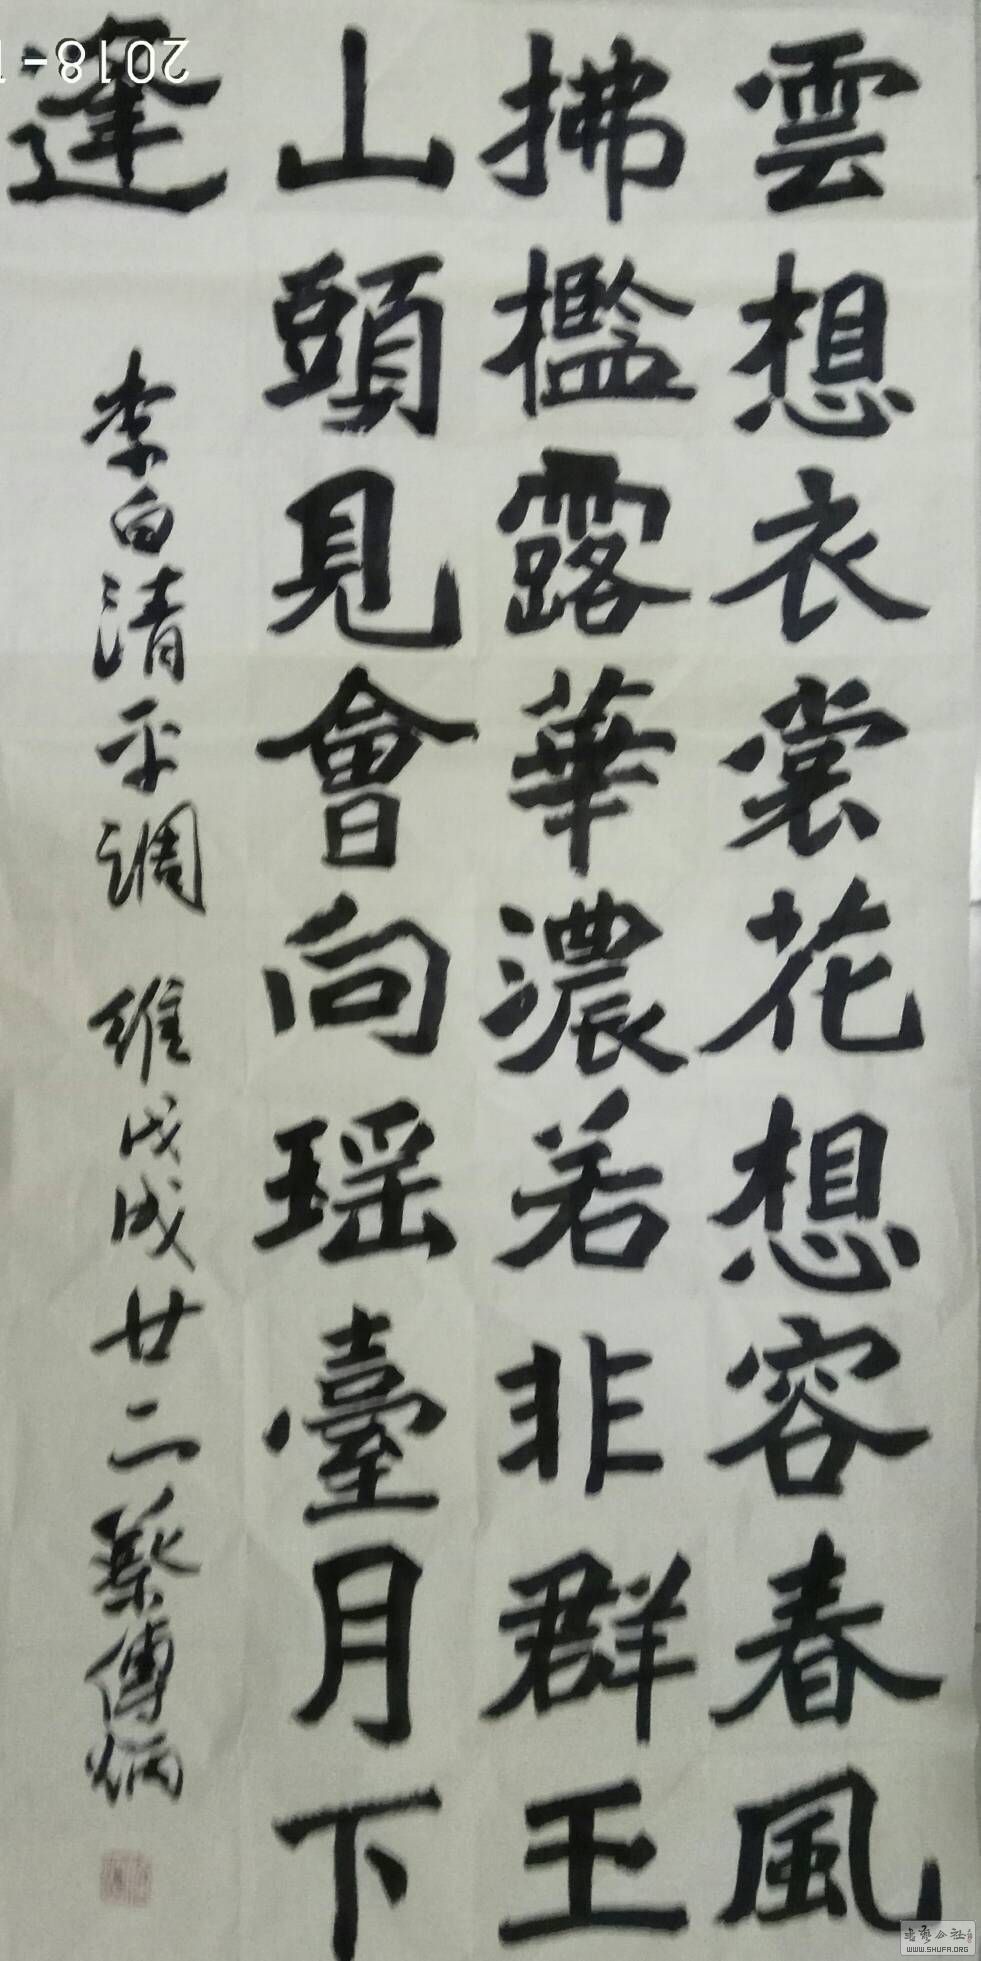 雲想衣裳花想容春風
拂檻露華濃若非群王
山頭見會向瑶臺月下
逢
李白清平調 維戊戌廿二蔡傳炳
2018-1
书艺公社
WWW.SHUFA.ORG